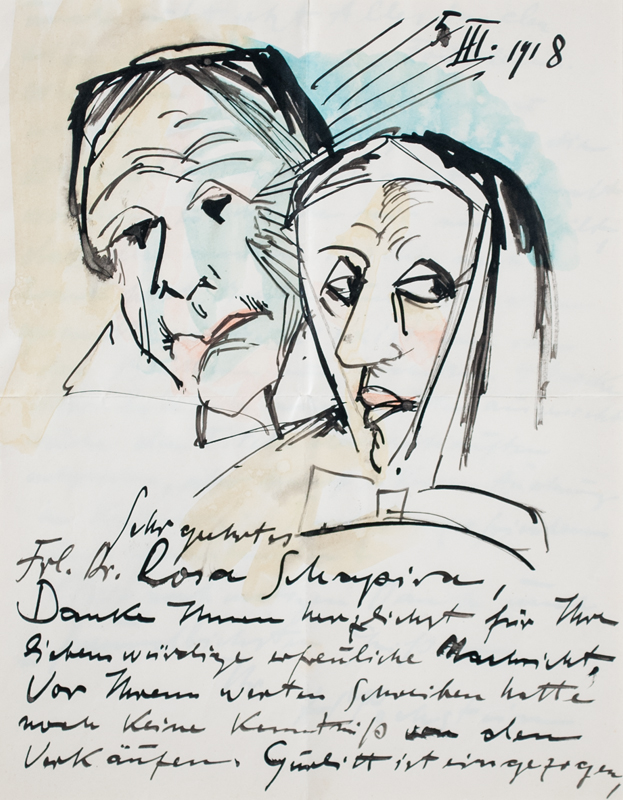 5. III. 1918
Sehr geehrtes
Frl. Dr. Rosa Schapira,
Danke Ihnen herzlichst für Ihre
liebenswürdige erfreuliche Nachricht,
Vor Ihrem werten Schreiben hatte
noch keine Kenntniß von den
Verkäufen. Gurlitt ist eingezogen,